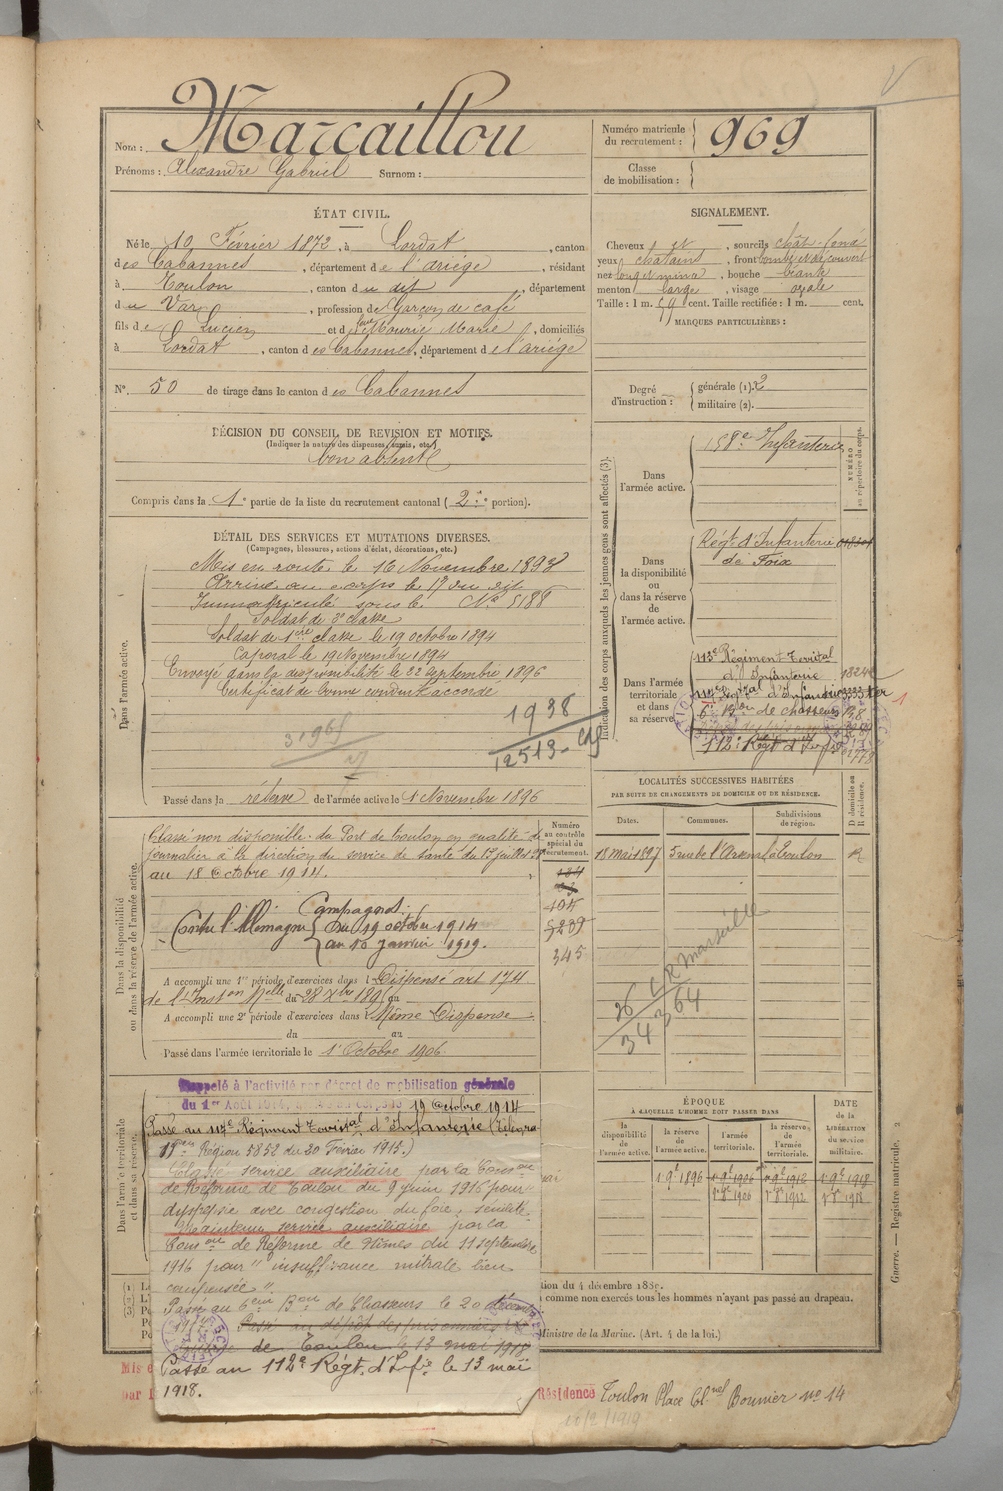 Nom : Marcaillou
Prénoms : Alexandre Gabriel Surnom :
Numéro matricule du recrutement : 969
Classe de mobilisation :
ÉTAT CIVIL.
Né le 10 Février 1872, à Lordat, canton
des Cabannes, département de l'ariége, résidant
à Toulon, canton du dit, département
du Var, profession de Garçon de café
fils de Lucien et de Mourié Marie, domiciliés
à Lordat, canton des Cabannes, département de l'ariége
N° 50 de tirage dans le canton des Cabannes
SIGNALEMENT.
Cheveux et, sourcils chât. foncé
yeux chatains, front bombé et découvert
nez long et mince, bouche béante
menton large, visage ovale
Taille : 1 m. 59 cent. Taille rectifiée : 1 m. cent.
MARQUES PARTICULIÈRES :
Degré d'instruction : générale (1). 2
militaire (2).
DÉCISION DU CONSEIL DE REVISION ET MOTIFS.
(Indiquer la nature des dispenses, sursis, etc.)
bon absent
Compris dans la 1e partie de la liste du recrutement cantonal (2e portion).
DÉTAIL DES SERVICES ET MUTATIONS DIVERSES.
(Campagnes, blessures, actions d'éclat, décorations, etc.)
Dans l'armée active.
Mis en route le 16 Novembre 1893
Arrivé au corps le 17 du dit
Immatriculé sous le No 5188
Soldat de 2e classe
Soldat de 1ère classe le 19 octobre 1894
Caporal le 19 Novembre 1894
Envoyé dans la disponibilité le 22 Septembre 1896
Certificat de bonne conduite accordé
1938
12513
Passé dans la réserve de l'armée active le 1 Novembre 1896
Indication des corps auxquels les jeunes gens sont affectés (3).
NUMÉRO au répertoire du corps.
Dans l'armée active.
158e Infanterie
Dans la disponibilité ou dans la réserve de l'armée active.
Régt d'Infanterie
de Foix
Dans l'armée territoriale et dans sa réserve
113e Régiment Territal
d'Infanterie
6e Bon de chasseurs
112e Régt d'Infie
LOCALITÉS SUCCESSIVES HABITÉES
PAR SUITE DE CHANGEMENTS DE DOMICILE OU DE RÉSIDENCE.
D domicile ou R résidence.
Dates. Communes. Subdivisions de région.
18 Mai 1897 5 rue de l'Arsenal Toulon R
CR Marseille
36
34364
Dans la disponibilité ou dans la réserve de l'armée active.
Numéro au contrôle spécial du recrutement.
Classé non disponible du Port de Toulon en qualité de
journalier à la direction du service de santé du 15 juillet
au 18 Octobre 1914.
Campagnes :
Contre l'Allemagne du 19 octobre 1914
au 10 janvier 1919.
345
A accompli une 1re période d'exercices dans l Dispensé art 174
de l'Inston Melle du 28 Xbre 1895 au
A accompli une 2e période d'exercices dans l Même Dispense
du au
Passé dans l'armée territoriale le 1r Octobre 1906
Dans l'armée territoriale et dans sa réserve.
Rappelé à l'activité par décret de mobilisation générale
du 1er Août 1914, 19 Octobre 1914
Passé au 114e Régiment Territal d'Infanterie (Télégra
15me Région 5852 du 20 Février 1915.)
Classé service auxiliaire par la Comson
de Réforme de Toulon du 9 juin 1916 pour
dyspepsie avec congestion du foie, sénilité
Maintenu service auxiliaire par la
Comon de Réforme de Nîmes du 11 septembre
1916 pour "insuffisance mitrale bien
compensée".
Passé au 6eme Bon de Chasseurs le 20 décembre
Passé au dépôt des prisonniers
de Toulon le 12 mai 1918
Passé au 112e Régt d'Infie le 13 mai
1918.
ÉPOQUE
À LAQUELLE L'HOMME DOIT PASSER DANS
la disponibilité de l'armée active. la réserve de l'armée active. l'armée territoriale. la réserve de l'armée territoriale.
DATE de la LIBÉRATION du service militaire.
1 9e 1896 1 9e 1906 1 9e 1912 1 9e 1918
1r 8e 1906 1r 8e 1912 1r 8e 1918
tion du 4 décembre 1889.
comme non exercés tous les hommes n'ayant pas passé au drapeau.
Ministre de la Marine. (Art. 4 de la loi.)
Guerre. — Registre matricule. 2
Mis e
par l
Résidence Toulon Place Clnel Bonnier no 14
12/2/1919